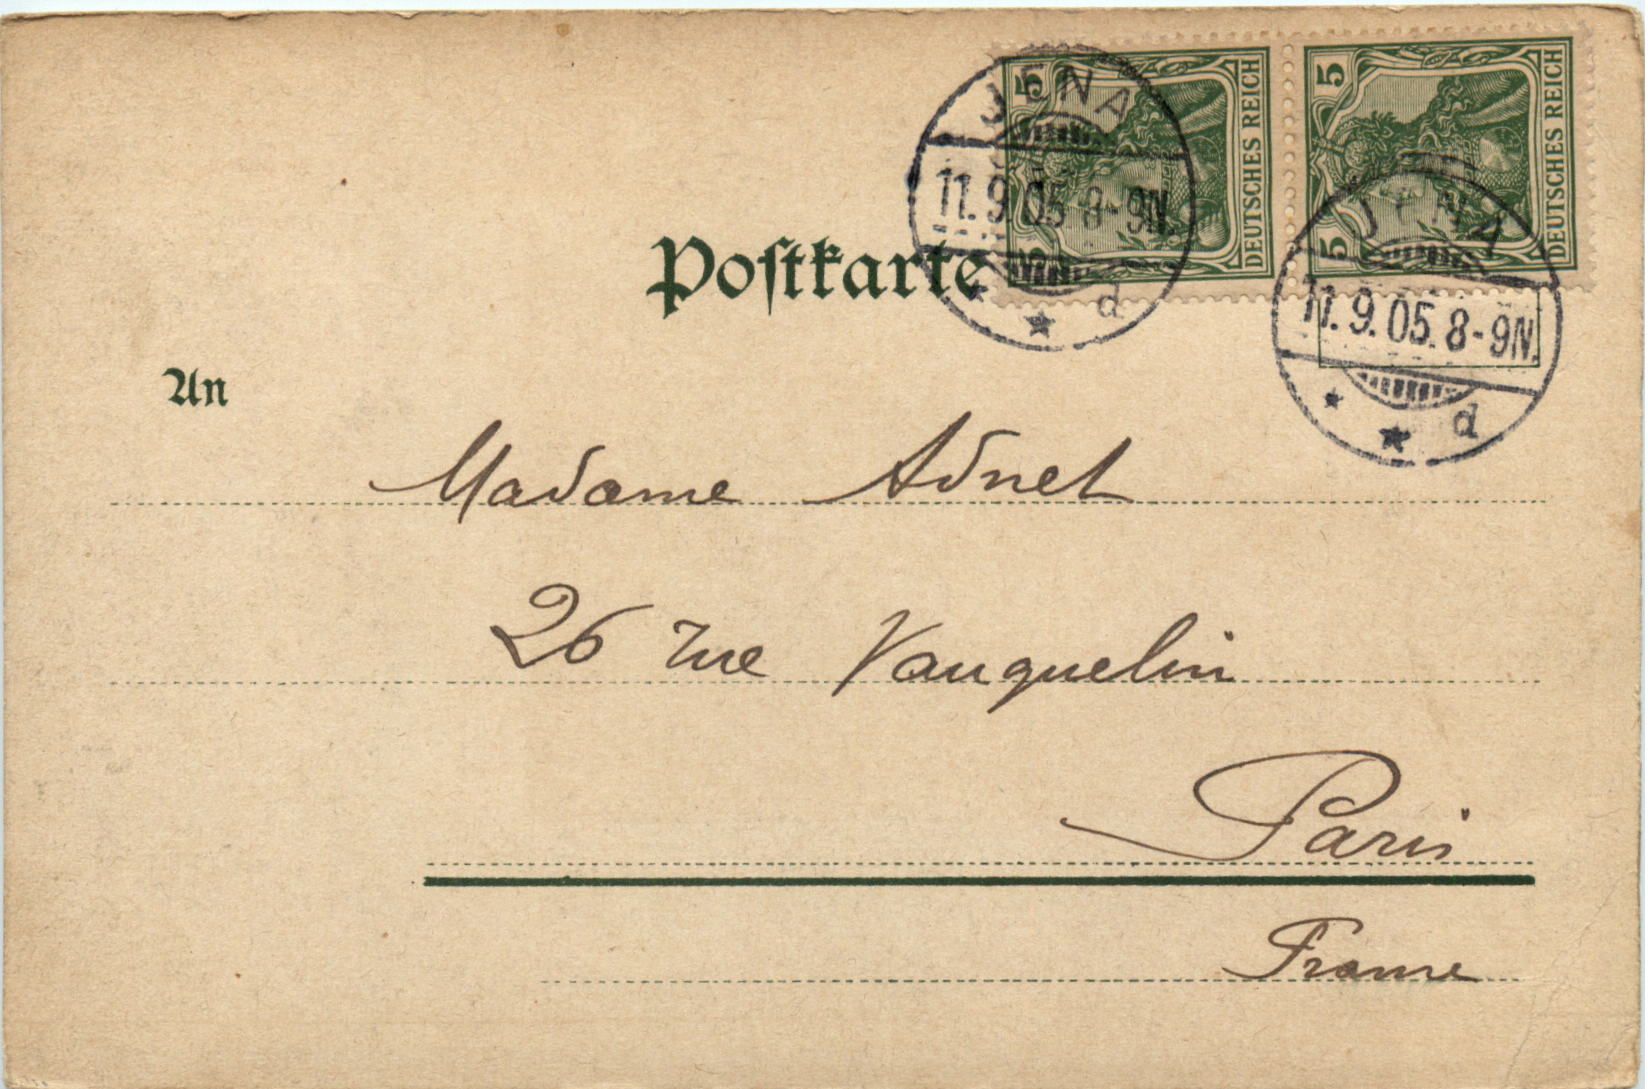 5
DEUTSCHES REICH
5
5
DEUTSCHES REICH
JENA
11.9.05.8-9N.
d
JENA
11.9.05.8-9N.
d
Postkarte
An
Madame Adnet
26 rue Vauquelin
Paris
France